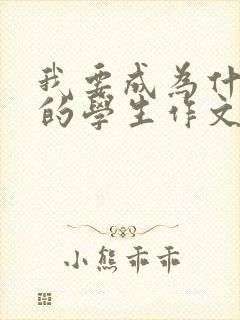 我要成為什
的學生作文
小熊乖乖